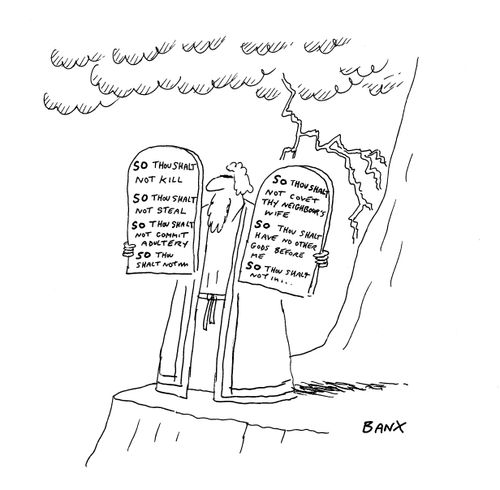 SO THOU SHALT
NOT KILL
SO THOU SHALT
NOT STEAL
SO THOU SHALT
NOT COMMIT
ADULTERY
SO THOU
SHALT NOT
SO THOU SHALT
NOT COVET
THY NEIGHBOUR'S
WIFE
SO THOU SHALT
HAVE NO OTHER
GODS BEFORE
ME
SO THOU SHALT
NOT
BANX